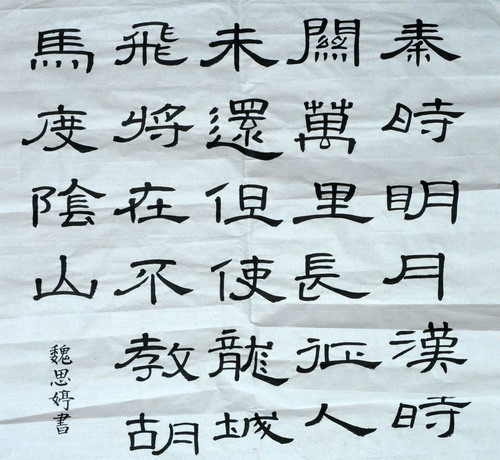 秦時明月漢時
關萬里長征人
未還但使龍城
飛將在不教胡
馬度陰山
魏思婷書